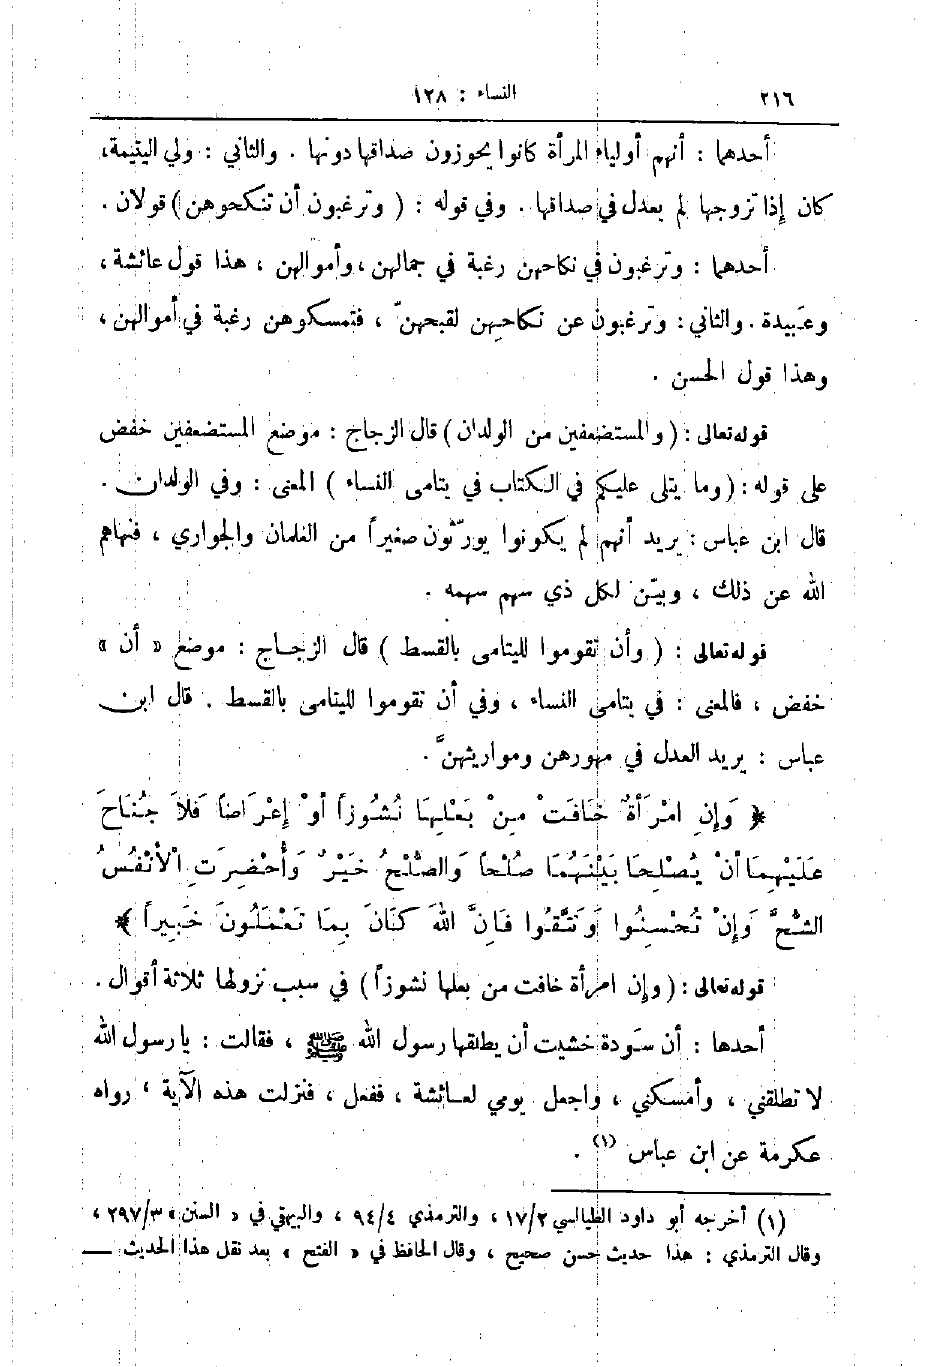 ٢١٦
النساء : ١٢٨
أحدهما : أنهم أولياء المرأة كانوا يحوزون صداقها دونها . والثاني : ولي اليتيمة،
كان إذا تزوجها لم يعدل في صداقها . وفي قوله : ( وترغبون أن تنكحوهن ) قولان .
أحدهما : وترغبون في نكاحهن رغبة في جمالهن ، وأموالهن ، هذا قول عائشة ،
وعَبيدة . والثاني : وترغبون عن نكاحهن لقبحهنّ ، فتمسكوهن رغبة في أموالهن ،
وهذا قول الحسن .
قوله تعالى : ( والمستضعفين من الولدان ) قال الزجاج : موضع المستضعفين خفض
على قوله : ( وما يتلى عليكم في الكتاب في يتامى النساء ) المعنى : وفي الولدان .
قال ابن عباس : يريد أنهم لم يكونوا يورّثون صغيراً من الغلمان والجواري ، فنهاهم
الله عن ذلك ، وبيّن لكل ذي سهم سهمه .
قوله تعالى : ( وأن تقوموا لليتامى بالقسط ) قال الزجاج : موضع « أن »
خفض ، فالمعنى : في يتامى النساء ، وفي أن تقوموا لليتامى بالقسط . قال ابن
عباس : يريد العدل في مهورهن ومواريثهنّ .
﴿ وَإِنِ امْرَأَةٌ خَافَتْ مِنْ بَعْلِهَا نُشُوزاً أوْ إِعْرَاضاً فَلاَ جُنَاحَ
عَلَيْهِمَا أنْ يُصْلِحَا بَيْنَهُمَا صُلْحاً وَالصُّلْحُ خَيْرٌ وَأُحْضِرَتِ الْأنْفُسُ
الشُّحَّ وَإِنْ تُحْسِنُوا وَتَتَّقُوا فَإِنَّ اللهَ كَانَ بِمَا تَعْمَلُونَ خَبِيراً ﴾
قوله تعالى : ( وإن امرأة خافت من بعلها نشوزاً ) في سبب نزولها ثلاثة أقوال .
أحدها : أن سَودة خشيت أن يطلقها رسول الله ﷺ ، فقالت : يا رسول الله
لا تطلقني ، وأمسكني ، واجعل يومي لعائشة ، ففعل ، فنزلت هذه الآية ، رواه
عكرمة عن ابن عباس (١) .
(١) أخرجه أبو داود الطيالسي ١٧/٢ ، والترمذي ٩٤/٤ ، والبيهقي في « السنن » ٢٩٧/٣ ،
وقال الترمذي : هذا حديث حسن صحيح ، وقال الحافظ في « الفتح » بعد نقل هذا الحديث —